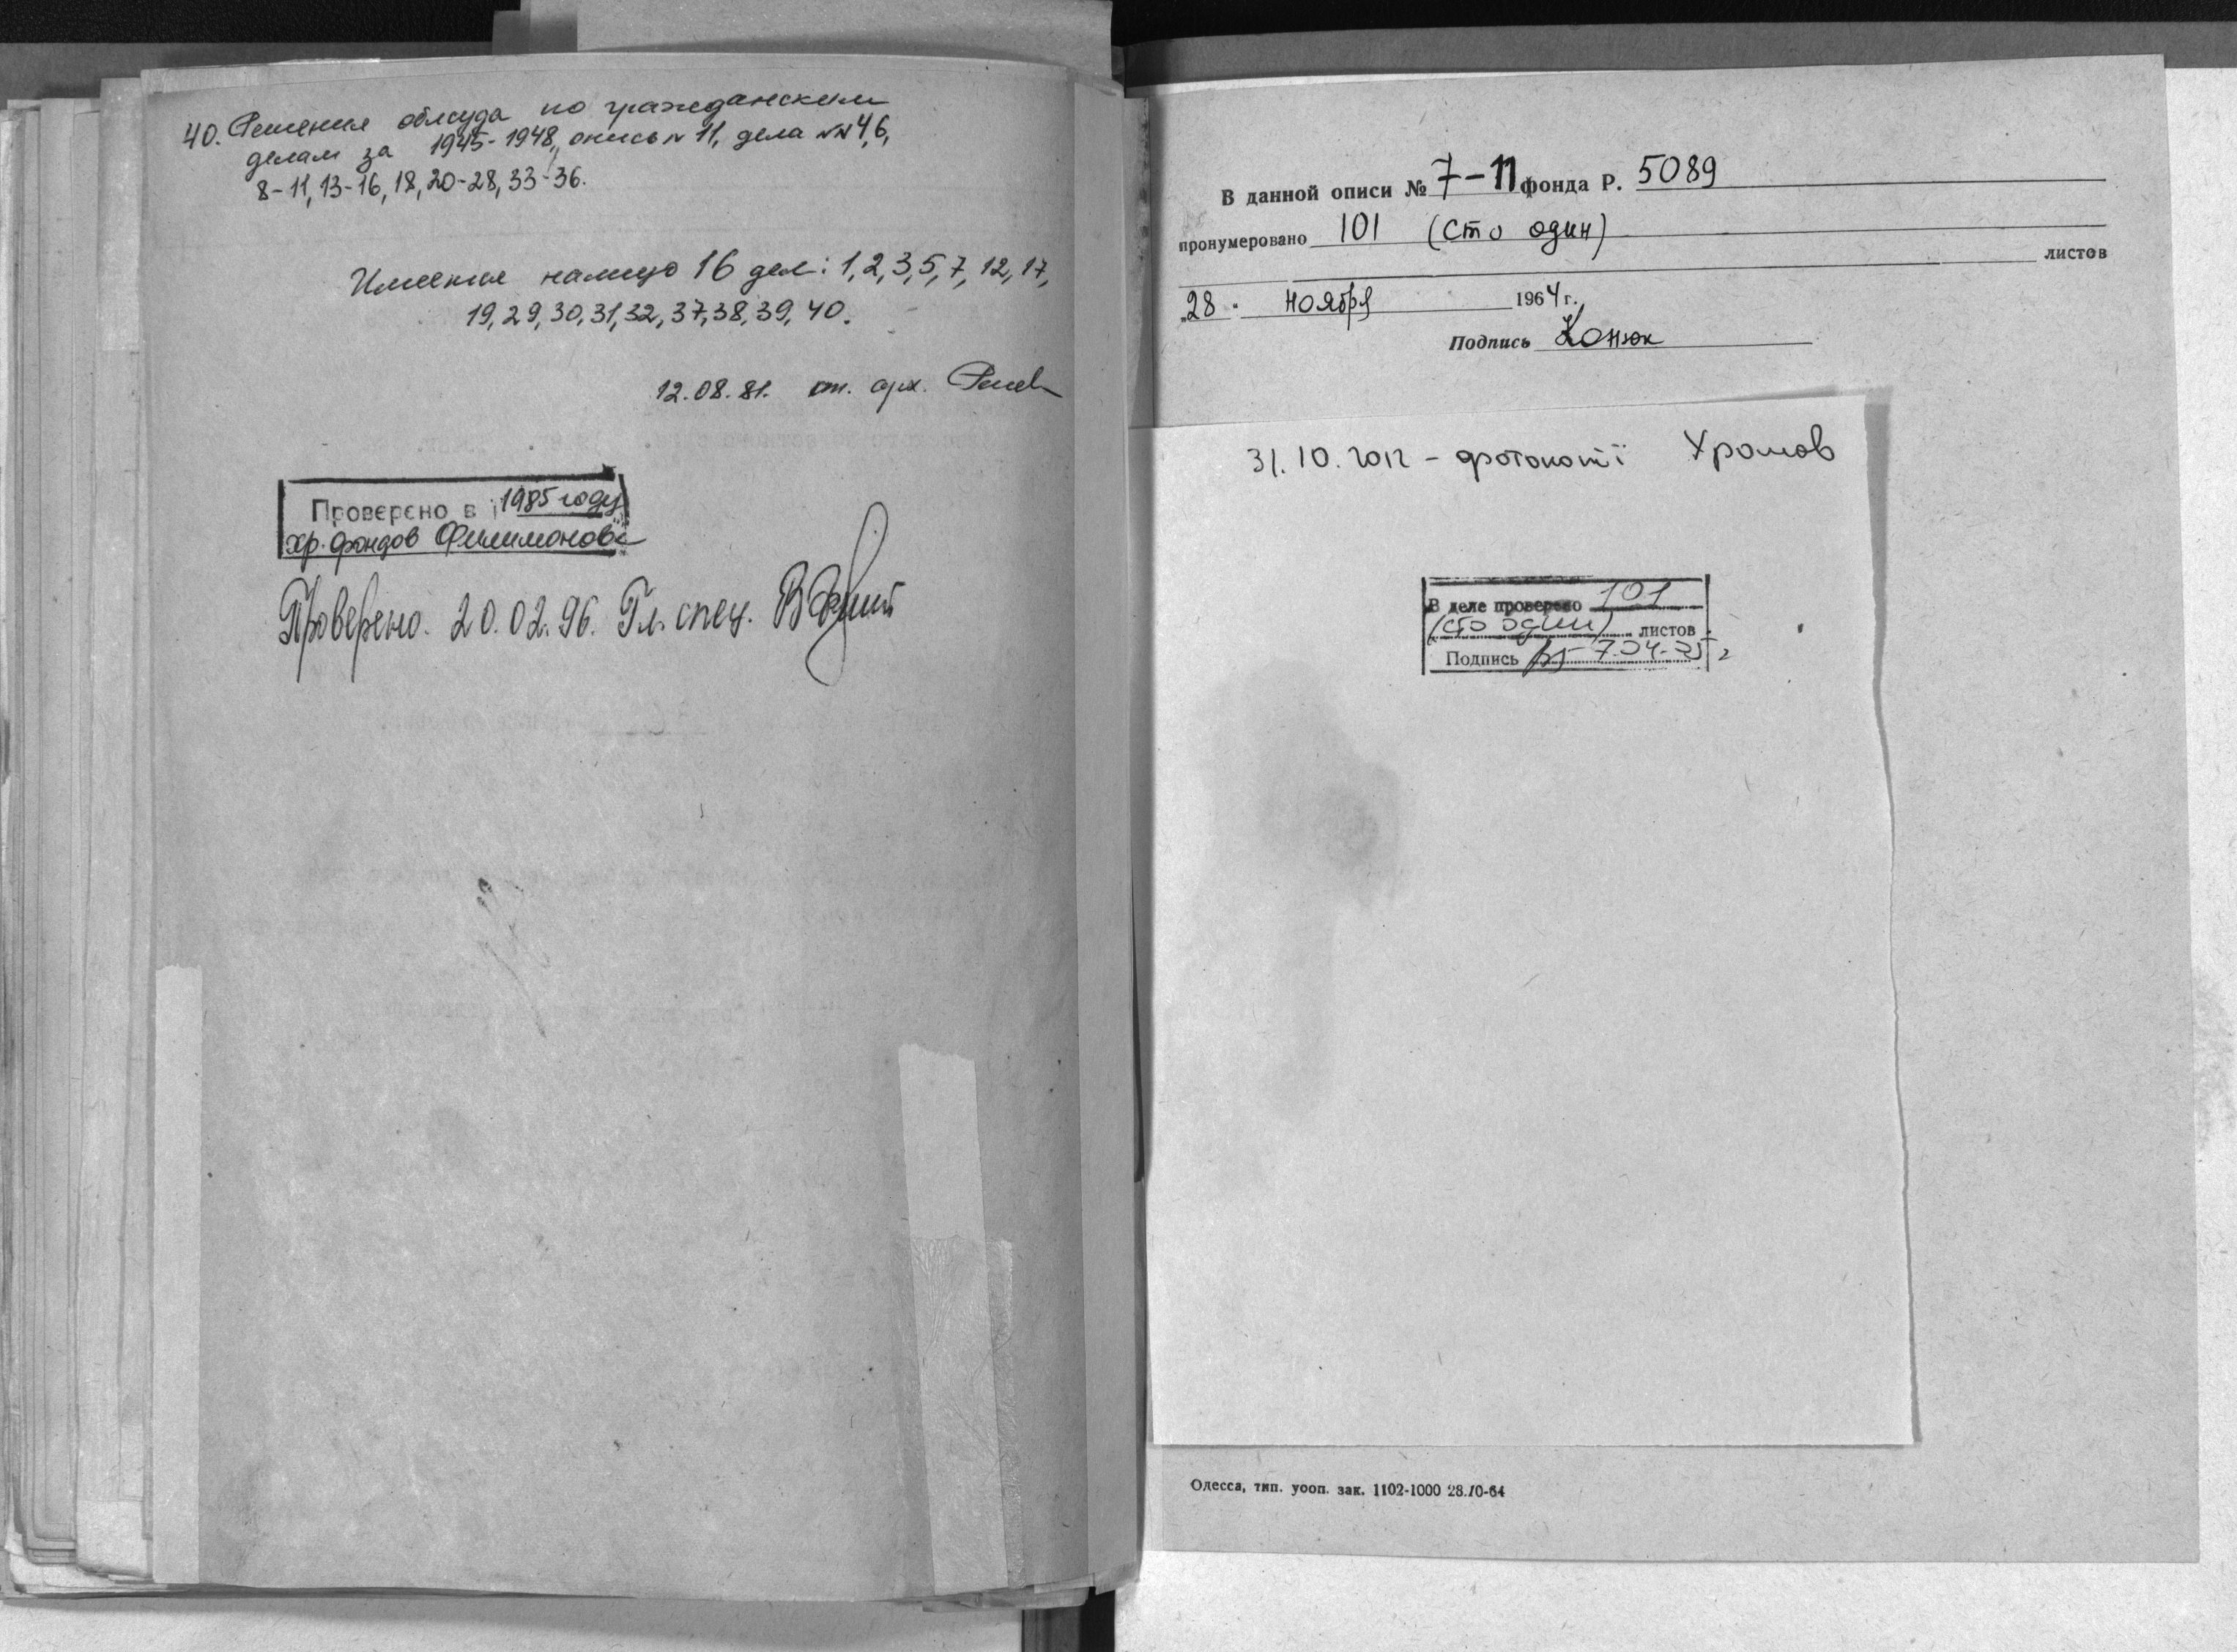 40. Решения облсуда по гражданским
делам за 1945-1948, опись № 11, дела №№ 4, 6,
8-11, 13-16, 18, 20-28, 33-36.
Имеются налицо 16 дел: 1, 2, 3, 5, 7, 12, 17,
19, 29, 30, 31, 32, 37, 38, 39, 40.
12.08.81. ст. арх.
Проверено в 1985 году
хр. фондов Филимонова
Проверено. 20.02.96. Гл. спец.
В данной описи № 7-11 фонда Р. 5089
пронумеровано 101 (сто один)
листов
„28" ноября 1964 г.
Подпись Конюк
31.10.2012 - фотокопії Храмов
В деле проверено 101
(сто один) листов
Подпись
Одесса, тип. уооп. зак. 1102-1000 28.10-64